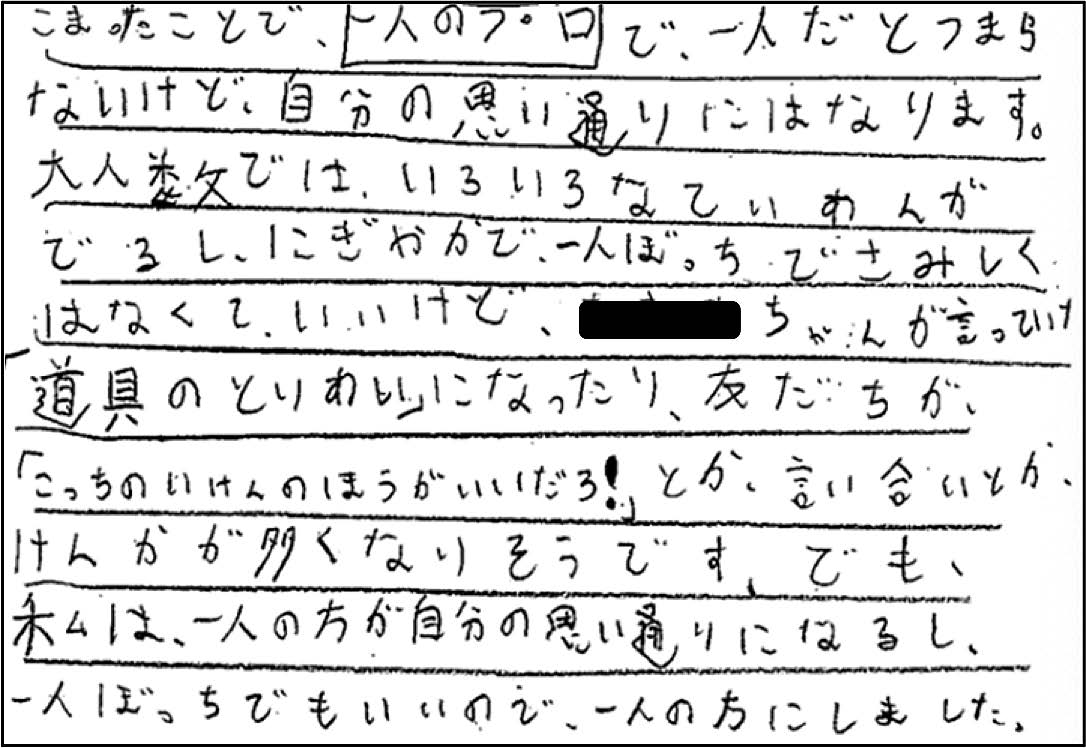 こまったことで、一人のプロで、一人だとつまら
ないけど、自分の思い通りにはなります。
大人数では、いろいろなていあんが
でるし、にぎやかで、一人ぼっちでさみしく
はなくて、いいけど、ちゃんが言ってい
「道具のとりあい」になったり、友だちが、
「こっちのいけんのほうがいいだろ!」とか、言い合いとか、
けんかが多くなりそうです、でも、
私は、一人の方が自分の思い通りになるし、
一人ぼっちでもいいので、一人の方にしました。